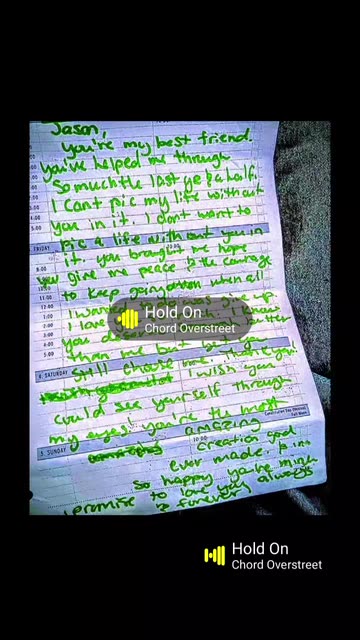 Jason,
You're my best friend.
You've helped me through
So much the last yr & a half.
I cant pic my life without
you in it. I dont want to
FRIDAY
pic a life without you in
it. You brought me hope
you give me peace & the courage
to keep going when all
I wanted to do was give up.
I love you
you deserve better
than me but
Still choose me. Thank you!
4 SATURDAY
I wish you
could see yourself through
my eyes! you're the most
Constitution Day Observed
5 SUNDAY
amazing
creation god
ever made. in
so happy you're mine
I promise to love always
& forever
8:00
11:00
12:00
1:00
2:00
3:00
4:00
5:00
Hold On
Chord Overstreet
Hold On
Chord Overstreet